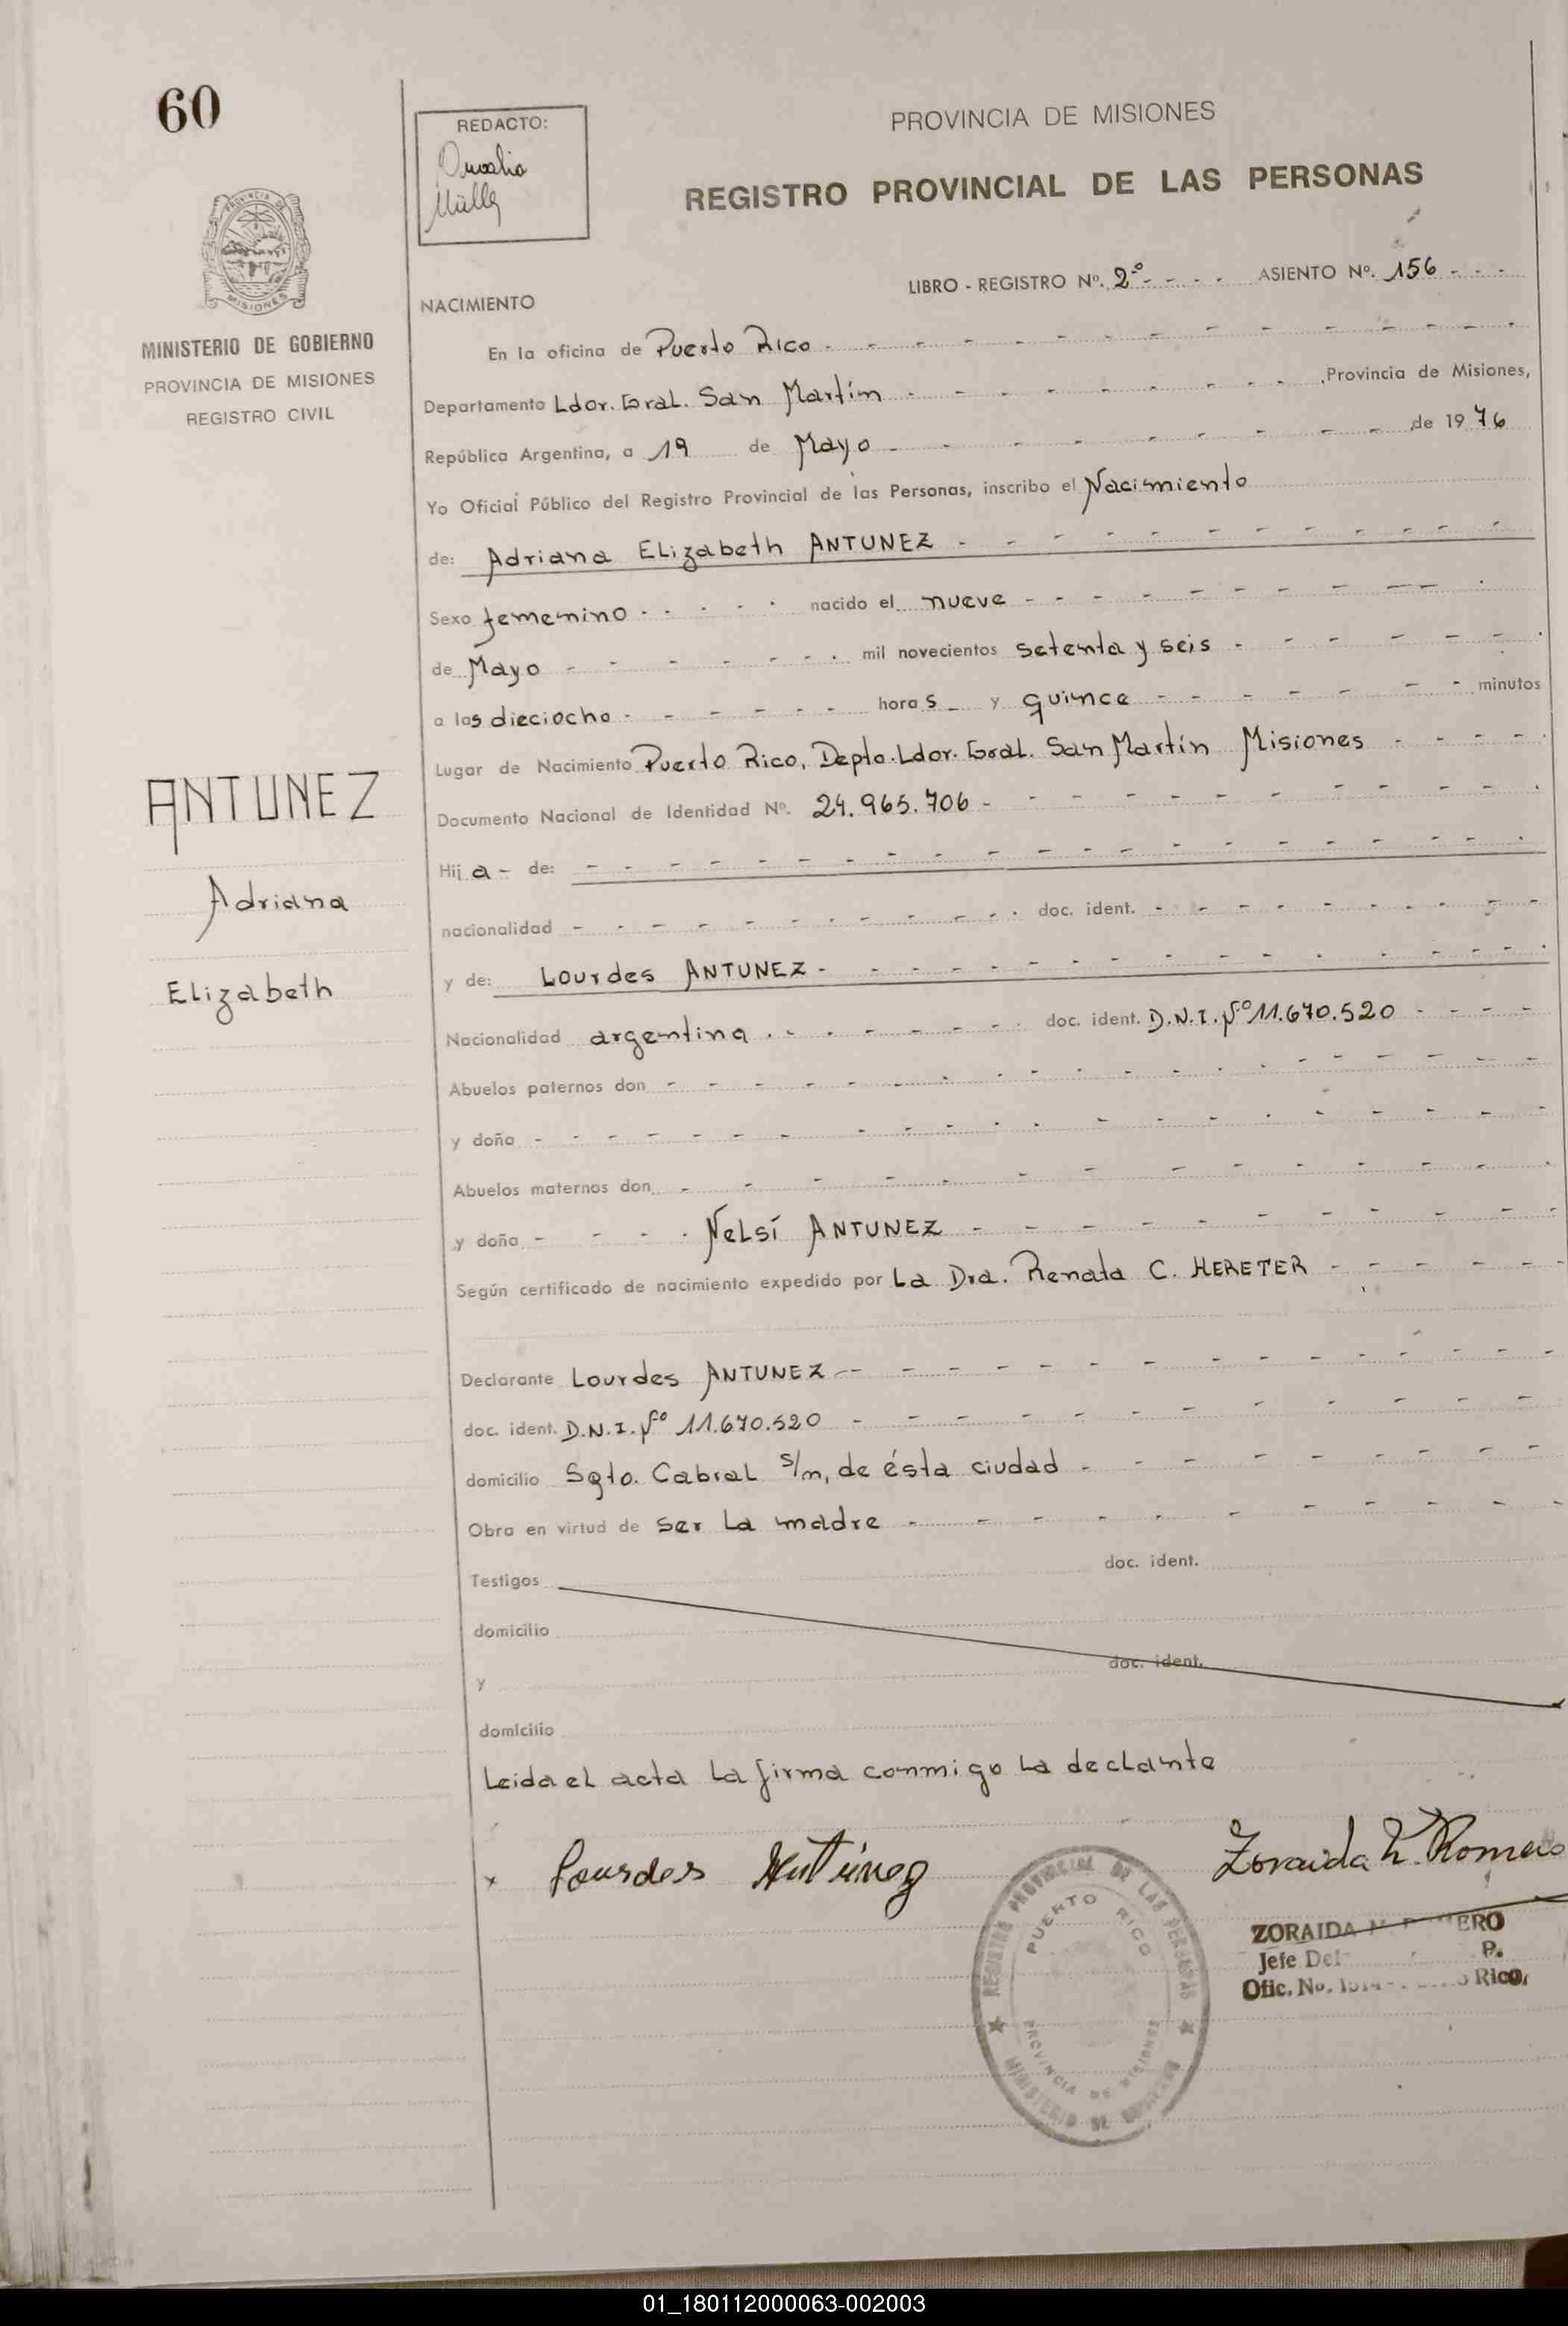 60
REDACTO:
PROVINCIA DE MISIONES
REGISTRO PROVINCIAL DE LAS PERSONAS
MISIONES
MINISTERIO DE GOBIERNO
PROVINCIA DE MISIONES
REGISTRO CIVIL
LIBRO - REGISTRO Nº. 2º - - - - ASIENTO Nº. 156 - - -
NACIMIENTO
En la oficina de Puerto Rico
Departamento Ldor. Gral. San Martín Provincia de Misiones,
República Argentina, a 19 de Mayo de 1976
Yo Oficial Público del Registro Provincial de las Personas, inscribo el Nacimiento
de: Adriana Elizabeth ANTUNEZ
Sexo femenino nacido el nueve
de Mayo mil novecientos setenta y seis
a las dieciocho horas y quince minutos
Lugar de Nacimiento Puerto Rico, Depto. Ldor. Gral. San Martín Misiones
ANTUNEZ
Adriana
Elizabeth
Documento Nacional de Identidad Nº. 24.965.706
Hija de:
nacionalidad doc. ident.
y de: Lourdes ANTUNEZ
Nacionalidad argentina doc. ident. D.N.I. Nº 11.670.520
Abuelos paternos don
y doña
Abuelos maternos don
y doña Nelsí ANTUNEZ
Según certificado de nacimiento expedido por La Dra. Renata C. HERETER
Declarante Lourdes ANTUNEZ
doc. ident. D.N.I. Nº 11.670.520
domicilio Sgto. Cabral s/n, de ésta ciudad
Obra en virtud de ser la madre
Testigos doc. ident.
domicilio
y doc. ident.
domicilio
Leida el acta la firma conmigo la declante
x Lourdes Antúnez
Zoraida Romero
REGISTRO PROVINCIAL DE LAS PERSONAS
PUERTO RICO
PROVINCIA DE MISIONES
MINISTERIO DE GOBIERNO
ZORAIDA
Jefe P.
Ofic. No. Rico,
01_180112000063-002003